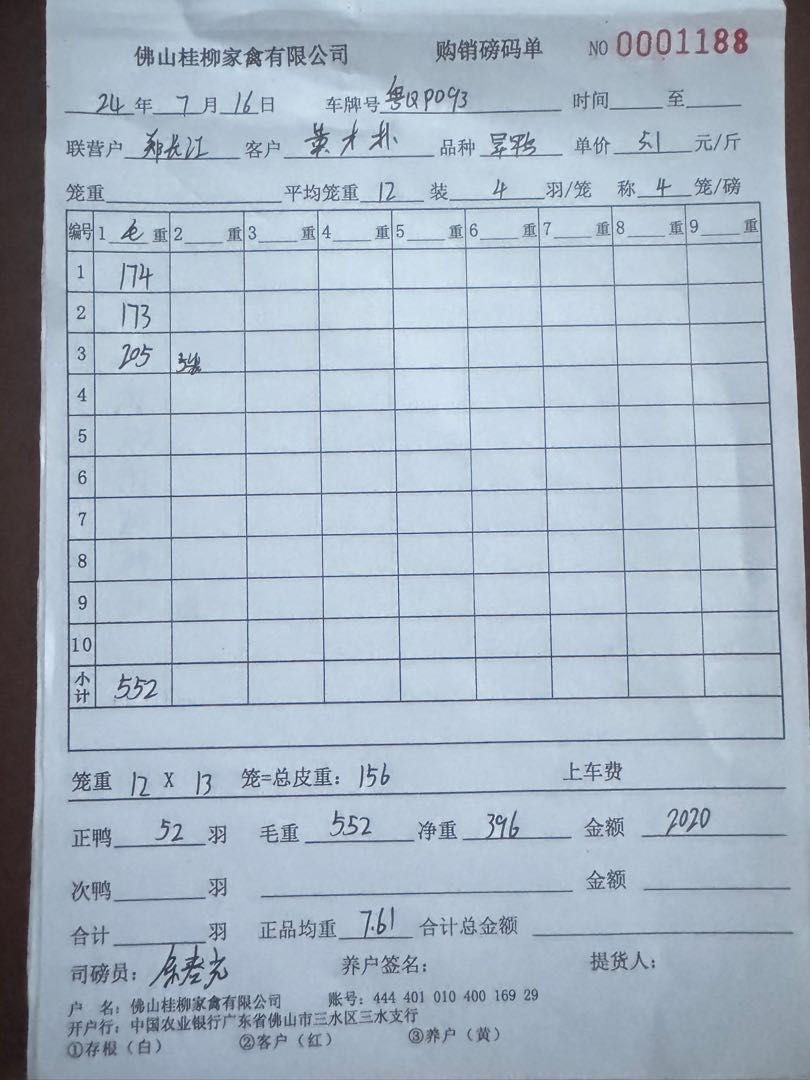 佛山桂柳家禽有限公司 购销磅码单 NO 0001188
24年 7月 16日 车牌号 粤QP093 时间____至____
联营户 郑长江 客户 黄才林 品种 单价 5.1 元/斤
笼重____ 平均笼重 12 装 4 羽/笼 称 4 笼/磅
编号 1 毛 重 2____重 3____重 4____重 5____重 6____重 7____重 8____重 9____重
1 174
2 173
3 205 5笼
4
5
6
7
8
9
10
小计 552
笼重 12 X 13 笼=总皮重: 156 上车费
正鸭 52 羽 毛重 552 净重 396 金额 2020
次鸭____羽 ____ 金额____
合计____羽 正品均重 7.61 合计总金额____
司磅员: 养户签名: 提货人:
户 名: 佛山桂柳家禽有限公司 账号: 444 401 010 400 169 29
开户行: 中国农业银行广东省佛山市三水区三水支行
①存根(白) ②客户(红) ③养户(黄)